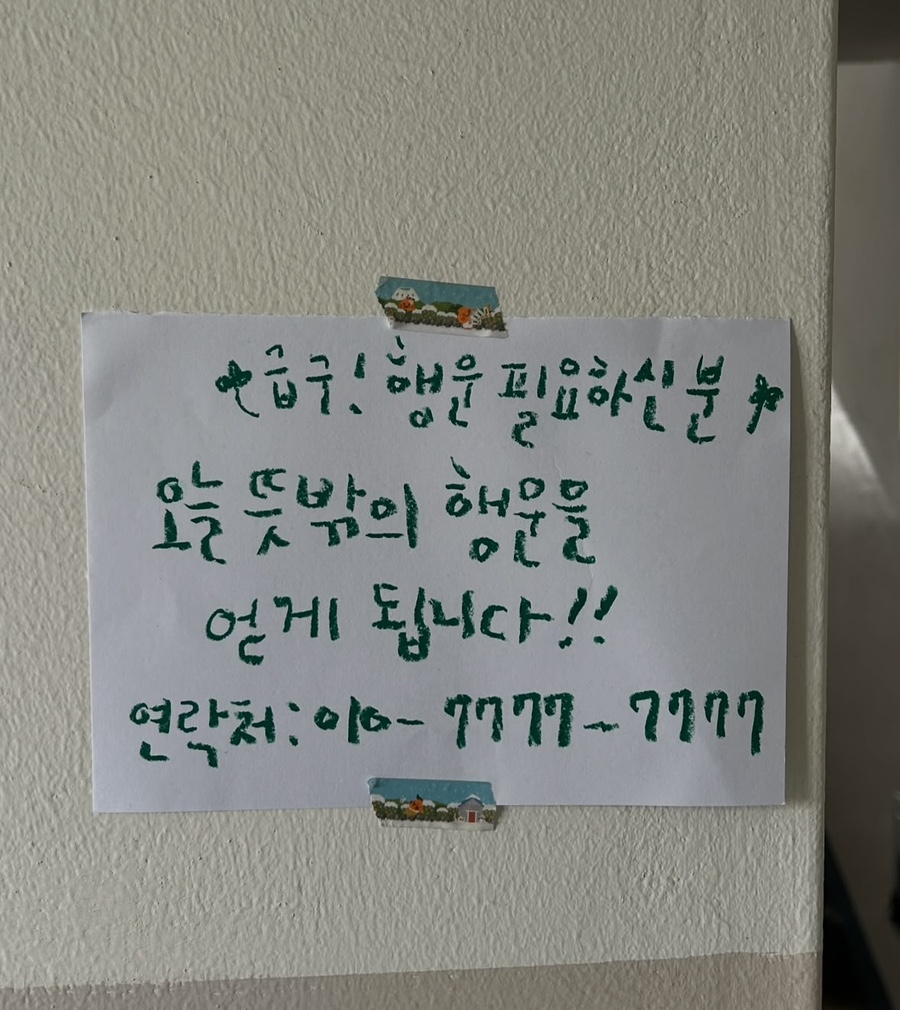 급구! 행운 필요하신 분
오늘 뜻밖의 행운을
얻게 됩니다!!
연락처: 010-7777-7777